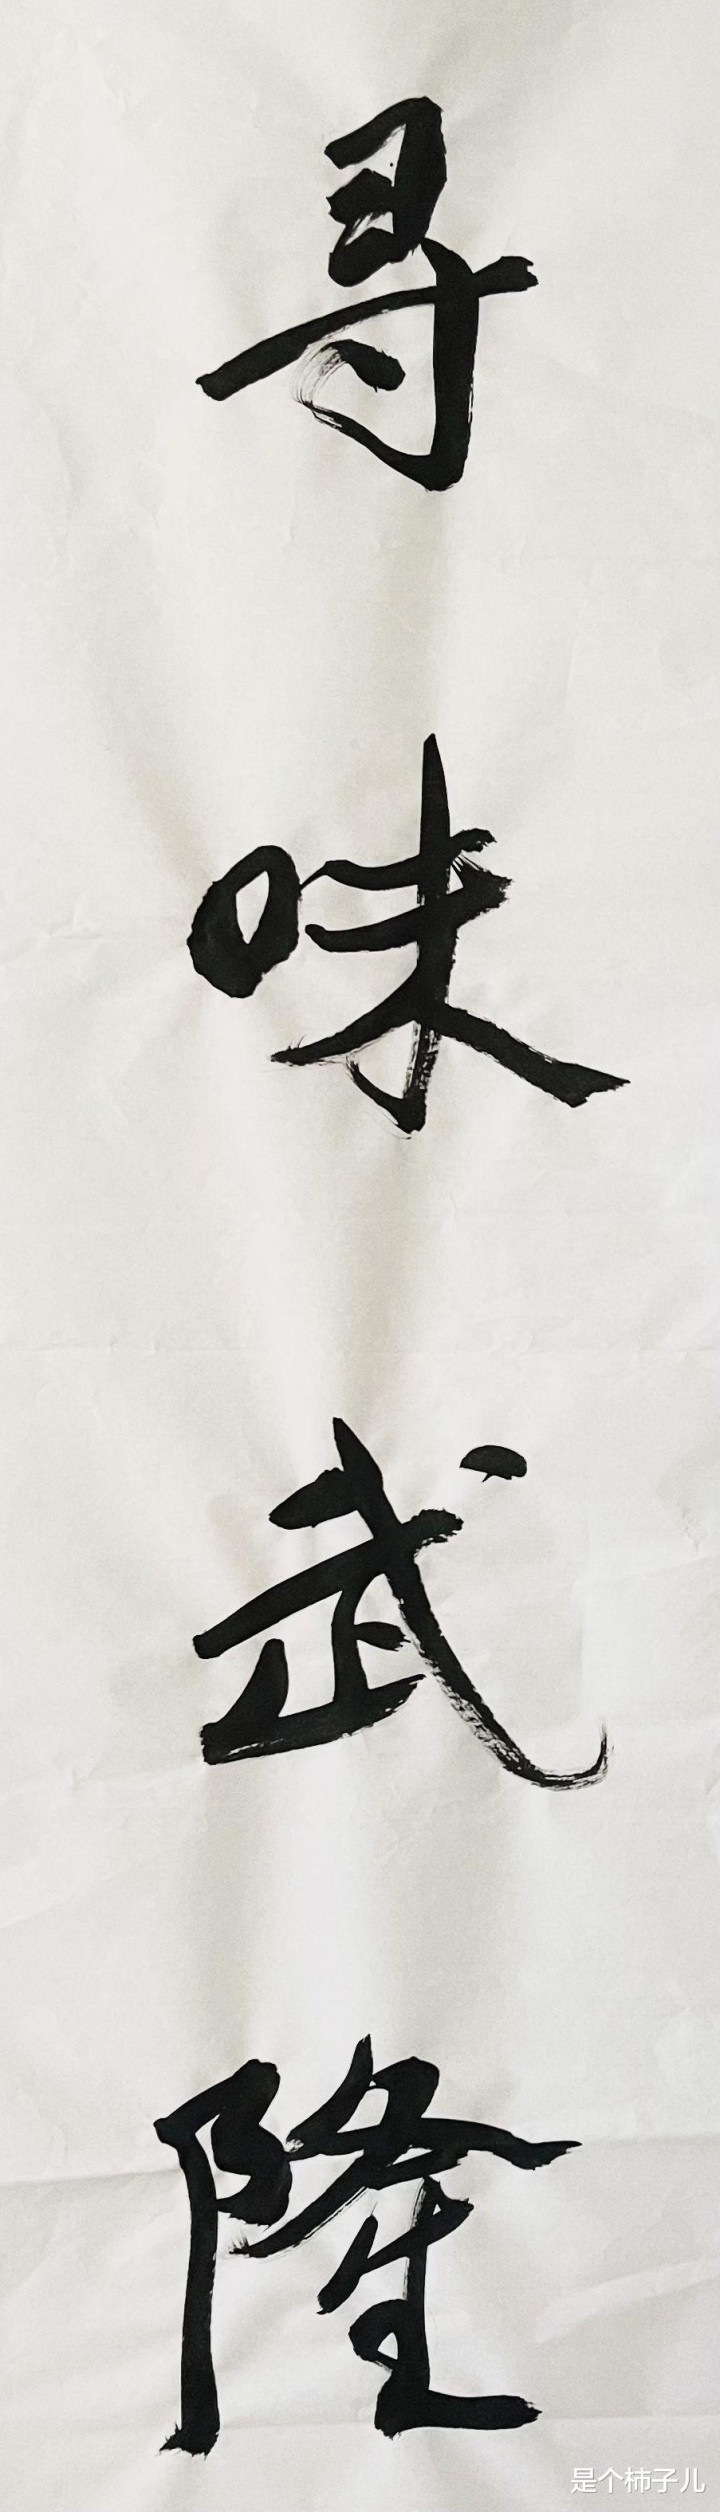 寻味武隆
是个柿子儿